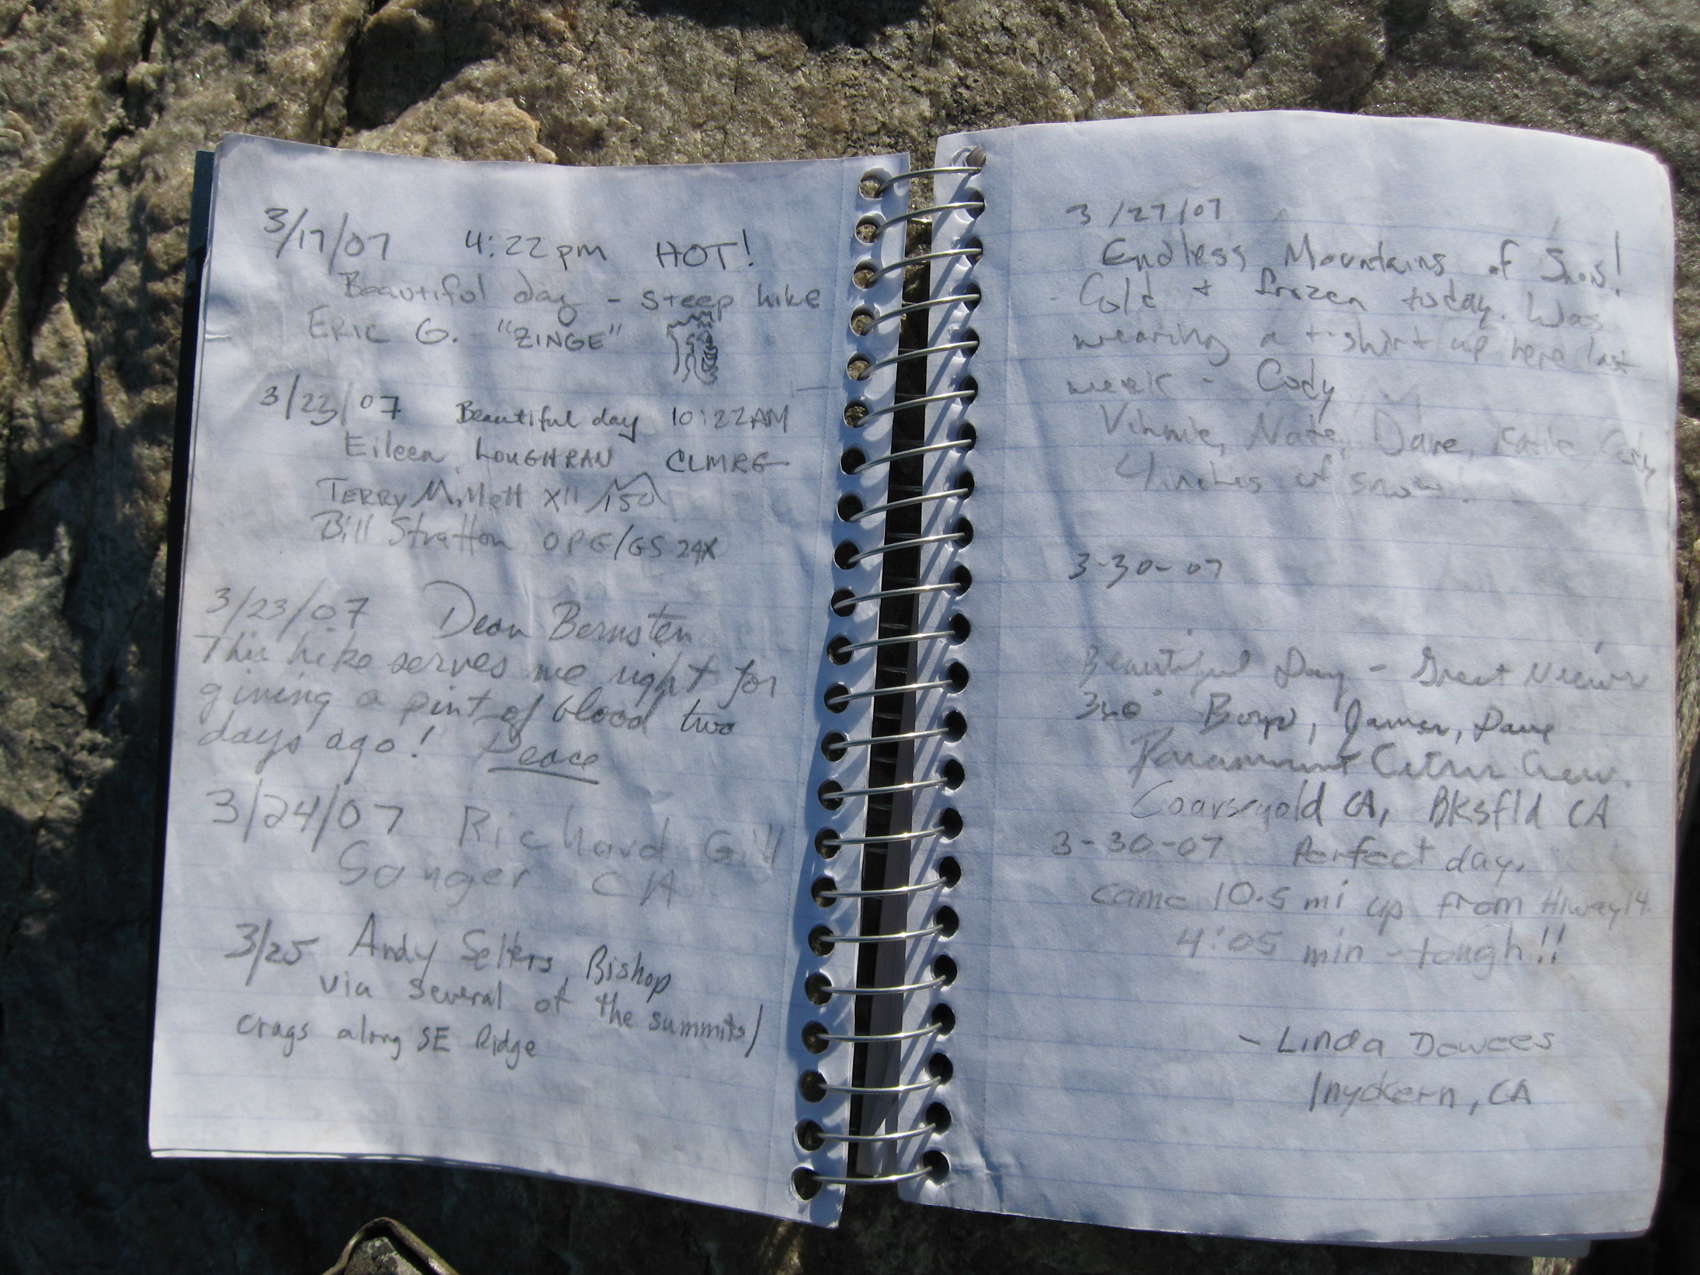 3/17/07 4:22pm HOT!
Beautiful day - steep hike
ERIC G. "ZINGE"
3/23/07 Beautiful day 10:22AM
Eileen LOUGHRAN CLMRG
TERRY Millett XII 150
Bill Stratton OPG/GS 24X
3/23/07 Dean Bernsten
This hike serves me right for
giving a pint of blood two
days ago! Peace
3/24/07 Richard Gill
Sanger CA
3/25 Andy Selters, Bishop
via several of the summits/
crags along SE Ridge
3/27/07
Endless Mountains of Snow!
Cold + frozen today. Was
wearing a t-shirt up here last
week - Cody
Vinnie, Nate, Dave, Katie Cody
4 inches of snow!
3-30-07
Beautiful Day - Great Views
360° James, Dave
Paramount Citrus Crew.
Coarsegold CA, Bksfld CA
3-30-07 Perfect day.
came 10.5 mi up from Hiway 14.
4:05 min - tough!!
- Linda Dowees
Inyokern, CA